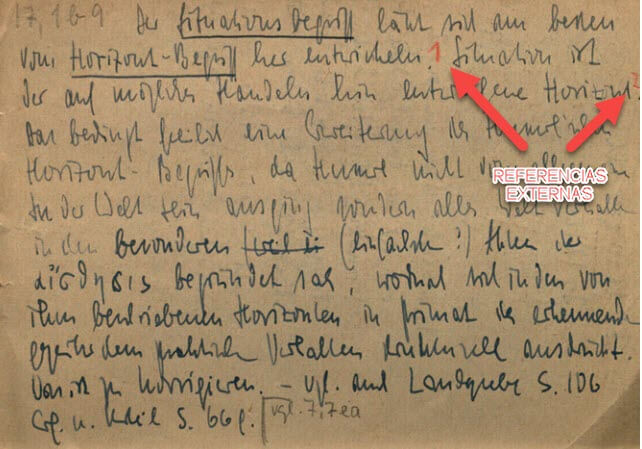 17,1b-9 Der Situationsbegriff läßt sich am besten
vom Horizont-Begriff her entwickeln.1 Situation ist
der auf mögliches Handeln hin entworfene Horizont.2
Das bedingt freilich eine Erweiterung des Husserl'schen
Horizont-Begriffs, da Husserl nicht vom allgemeinen
In der Welt sein ausging sondern alles Weltverhalten
in den besonderen (einfachen?) Akten der
αἴσθησις begründet sah, weshalb sich in den von
ihm beschriebenen Horizonten ein Primat des erkennenden
gegenüber dem praktischen Verhalten ausdrückt.
Das ist zu korrigieren. – vgl. auch Landgrebe S. 106
Erf. u. Urteil S. 66f. vgl. 7,7ea
REFERENCIAS
EXTERNAS